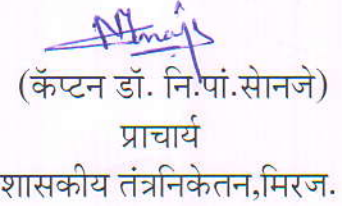 (कॅप्टन डॉ. नि.पां.सोनजे)
प्राचार्य
शासकीय तंत्रनिकेतन,मिरज.